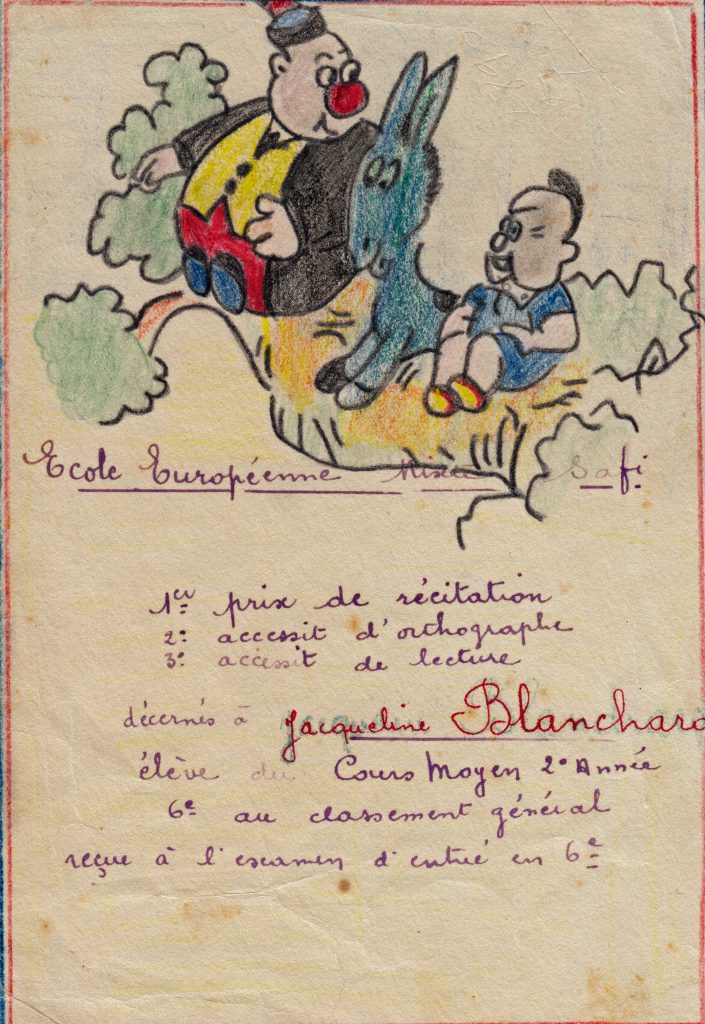 Ecole Européenne Mixte Safi
1er prix de récitation
2e accessit d'orthographe
3e accessit de lecture
décernés à Jacqueline Blanchard
élève du Cours Moyen 2e Année
6e au classement général
reçue à l'examen d'entrée en 6e